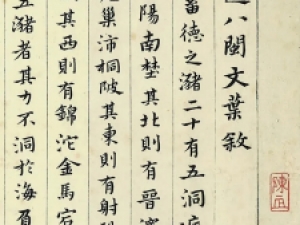 八閩文葉敘
德之瀦二十有五洞
陽南埜其北則有晉
巢沛桐陂其東則有射
其西則有錦沱金馬宕
五瀦者其力不洞於海